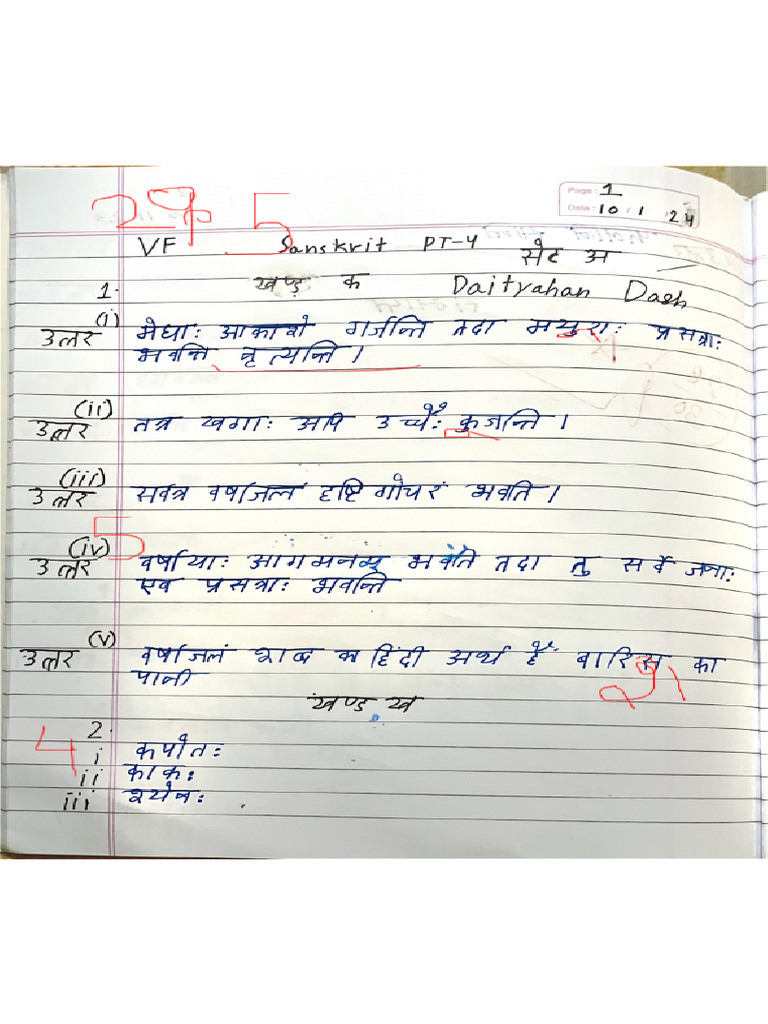 Page: 1
29.5
Date: 10 1 24
VF Sanskrit PT-4 सेट अ
1. खण्ड़ क Daityahan Dash
(i)
उत्तर मेघाः आकाशे गर्जन्ति तदा मयुराः प्रसन्नाः
भवन्ति, नृत्यन्ति ।
(ii)
उत्तर तत्र खगाः अपि उच्चैः कुजन्ति ।
(iii)
उत्तर सर्वत्र वर्षाजलं दृष्टिगोचरं भवति ।
5
(iv)
उत्तर वर्षायाः आगमनम् भवति तदा तु सर्वे जनाः
एव प्रसन्नाः भवन्ति
(v)
उत्तर वर्षाजलं शब्द का हिंदी अर्थ है बारिस का
पानी
खण्ड ख
4
2.
i कपोतः
ii काकः
iii श्येनः